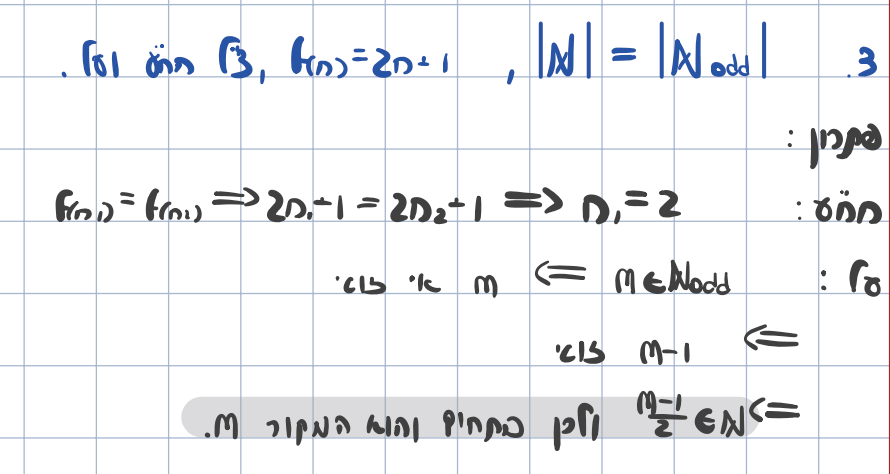 3. |ℕ| = |ℕ odd| , f(n)=2n+1 , צ"ל חח"ע ועל .
פתרון :
חח"ע : f(n₁)=f(n₂) ⟹ 2n₁+1 = 2n₂+1 ⟹ n₁=2
על : m∈ℕodd ⟸ m אי זוגי
⟸ m-1 זוגי
⟸ (m-1)/2 ∈ ℕ ולכן בתחום והוא המקור m.